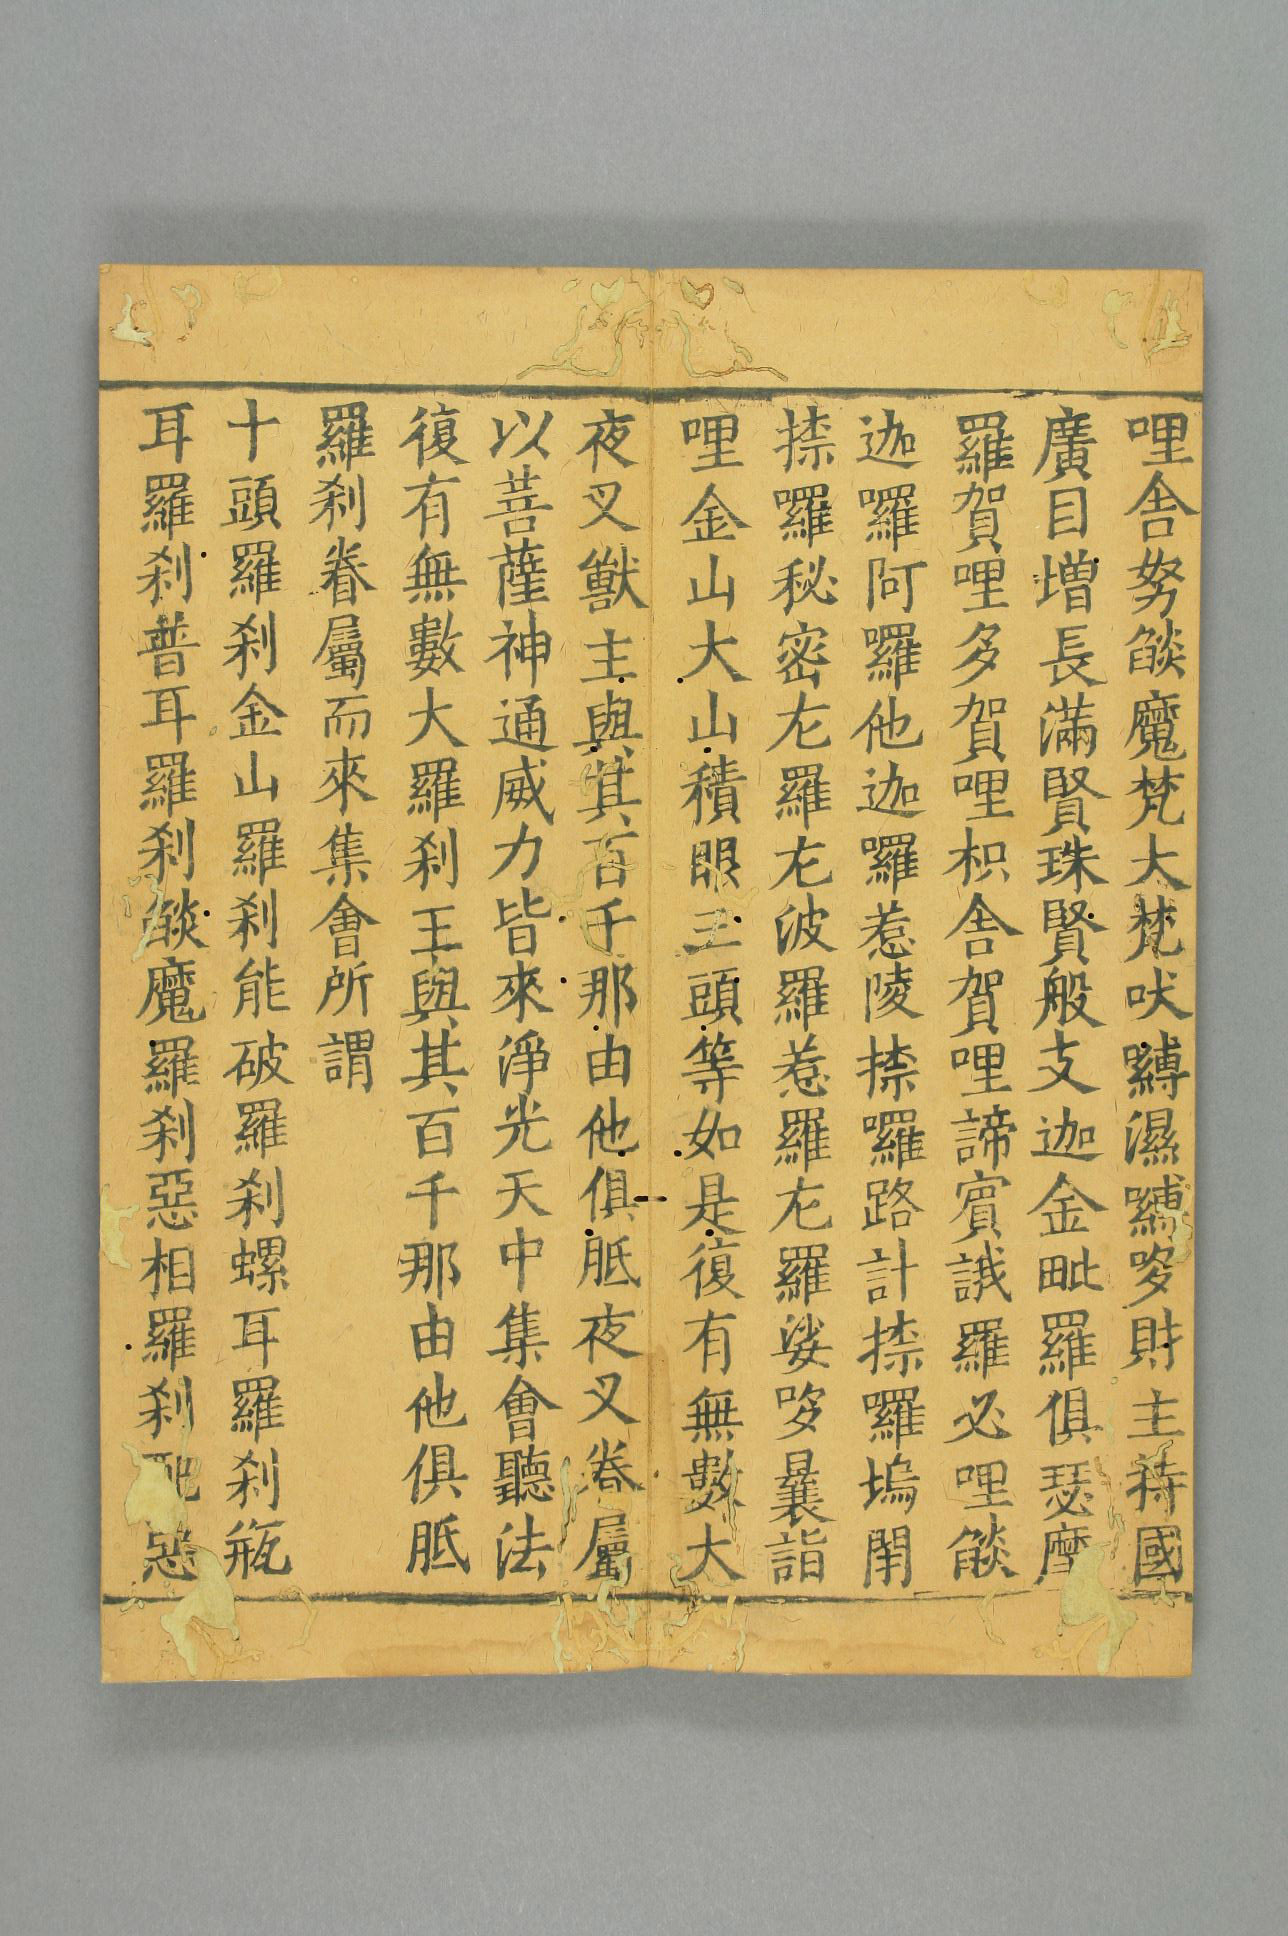 哩舍努燄魔梵大梵吠嚩濕嚩哆財主持國
廣目增長滿賢珠賢般支迦金毗羅俱瑟摩
羅賀哩多賀哩枳舍賀哩諦賓誐羅必哩燄
迦囉阿囉他迦囉惹陵捺囉路計捺囉塢閇
捺囉秘密尤羅尤波羅惹羅尤羅娑哆曩詣
哩金山大山積眼三頭等如是復有無數大
夜叉獸主與其百千那由他俱胝夜叉眷屬
以菩薩神通威力皆來淨光天中集會聽法
復有無數大羅剎王與其百千那由他俱胝
羅剎眷屬而來集會所謂
十頭羅剎金山羅剎能破羅剎螺耳羅剎瓶
耳羅剎普耳羅剎燄魔羅剎惡相羅剎惡